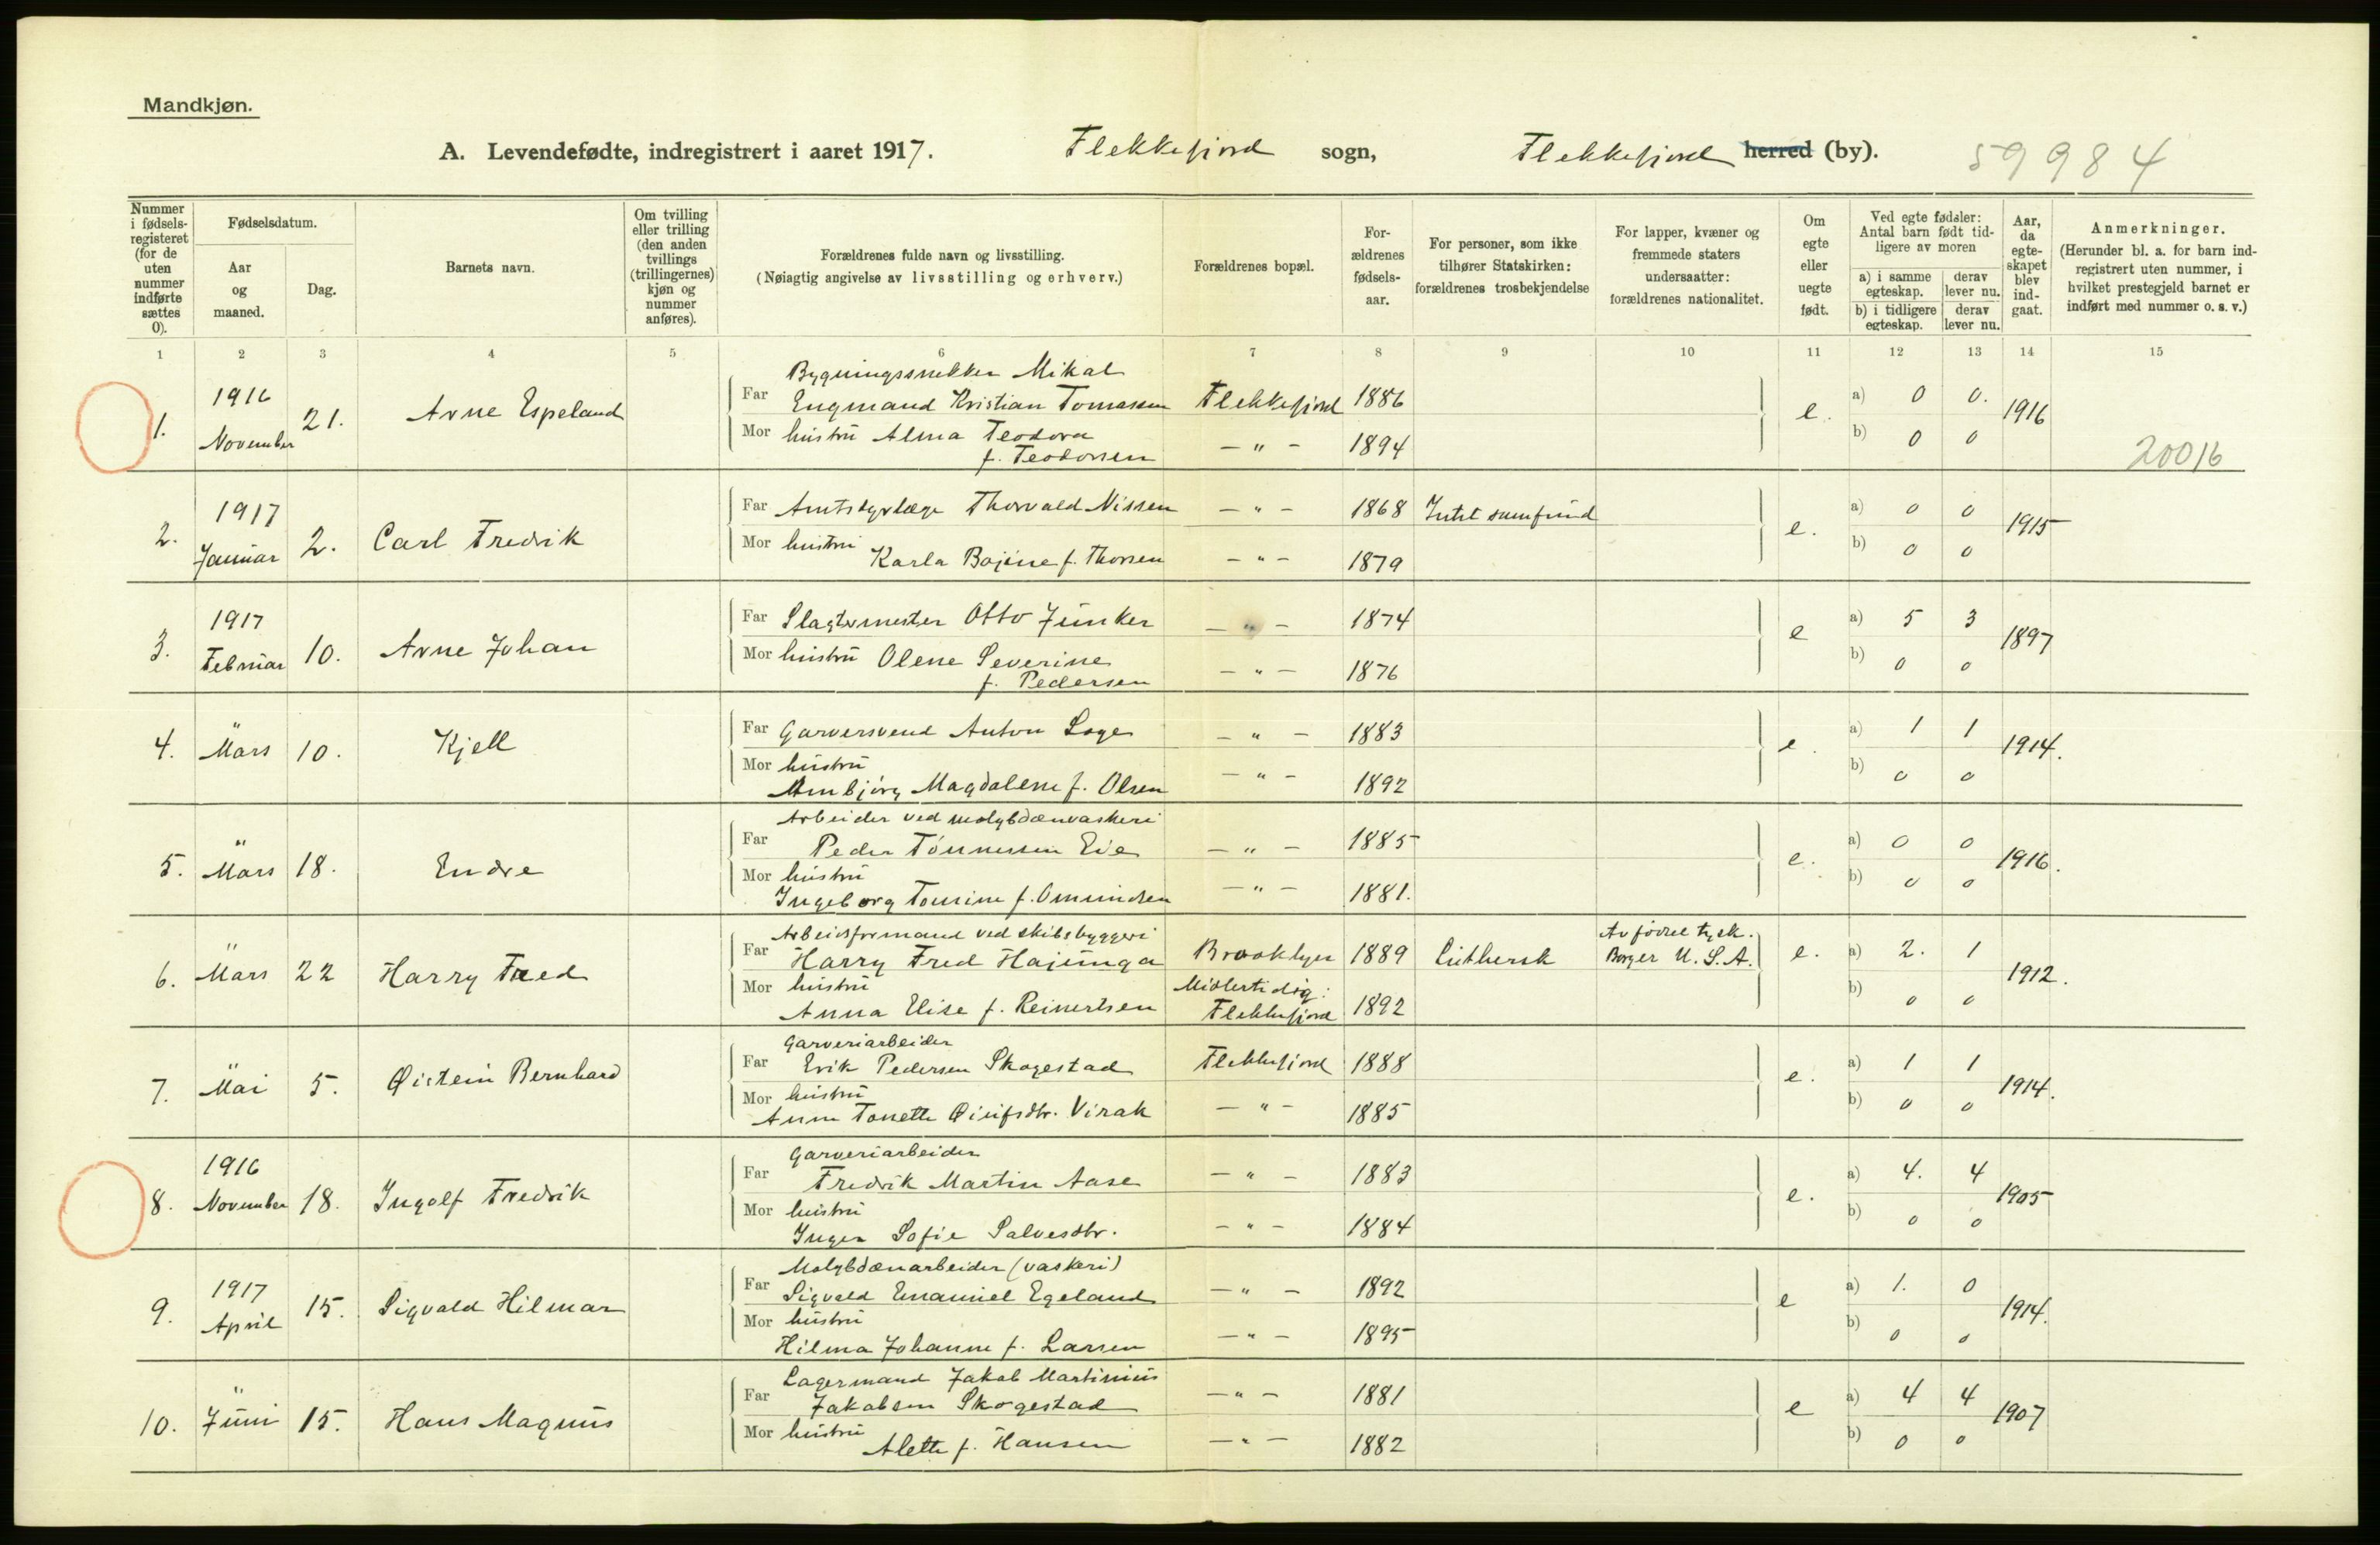 Mandkjøn.
A. Levendefødte, indregistrert i aaret 1917. Flekkefjord sogn, Flekkefjord herred (by). 59984
Nummer i fødsels-registeret (for de uten nummer indførte sættes 0).
Fødselsdatum.
Aar og maaned.
Dag.
Barnets navn.
Om tvilling eller trilling (den anden tvillings (trillingernes) kjøn og nummer anføres).
Forældrenes fulde navn og livsstilling.
(Nøiagtig angivelse av livsstilling og erhverv.)
Forældrenes bopæl.
For-ældrenes fødsels-aar.
For personer, som ikke tilhører Statskirken: forældrenes trosbekjendelse
For lapper, kvæner og fremmede staters undersaatter: forældrenes nationalitet.
Om egte eller uegte født.
Ved egte fødsler: Antal barn født tid-ligere av moren
a) i samme egteskap. derav lever nu.
b) i tidligere egteskap. derav lever nu.
Aar, da egte-skapet blev ind-gaat.
Anmerkninger.
(Herunder bl. a. for barn ind-registrert uten nummer, i hvilket prestegjeld barnet er indført med nummer o. s. v.)
1 2 3 4 5 6 7 8 9 10 11 12 13 14 15
1. 1916 November 21. Arne Espeland
Bygningssnekker Mikal
Far Engmand Kristian Tomassen Flekkefjord 1886 e. a) 0 0. 1916
Mor hustru Alma Teodora
f. Teodorsen — " — 1894 b) 0 0
20016
2. 1917 Januar 2. Carl Fredrik
Far Amtsdyrlæge Thorvald Nissen — " — 1868 Intet samfund e. a) 0 0 1915
Mor hustru
Karla Bojine f. Thorsen — " — 1879 b) 0 0
3. 1917 Februar 10. Arne Johan
Far Slagtermester Otto Junker — " — 1874 e a) 5 3 1897
Mor hustru Olene Severine
f. Pedersen — " — 1876 b) 0 0
4. " Mars 10. Kjell
Far Garversvend Anton Loge — " — 1883 e. a) 1 1 1914.
Mor hustru
Magdalene f. Olsen — " — 1892 b) 0 0
5. " Mars 18. Endre
Arbeider ved molybdænvaskeri
Far Peder Tønnessen Eie — " — 1885 e. a) 0 0 1916.
Mor hustru
Ingeborg Tomine f. Omundsen — " — 1881. b) 0 0
6. " Mars 22 Harry Fred
Arbeidsformand ved skibsbyggeri
Far Harry Fred Hajunga Brooklyn 1889 Luthersk Av fødsel tysk. Borger U. S. A. e. a) 2. 1 1912.
Mor hustru
Anna Elise f. Reinertsen Midlertidig: Flekkefjord 1892 b) 0 0
7. " Mai 5. Øistein Bernhard
Garveriarbeider
Far Erik Pedersen Skogestad Flekkefjord 1888 e. a) 1 1 1914.
Mor hustru
Anne Tonette Virak — " — 1885 b) 0 0
8. 1916 November 18. Ingolf Fredrik
Garveriarbeider
Far Fredrik Martin Aase — " — 1883 e. a) 4. 4 1905
Mor hustru
Inger Sofie Salvesdtr. — " — 1884 b) 0 0
9. 1917 April 15. Sigvald Hilmar
Molybdænarbeider (vaskeri)
Far Sigvald Emanuel Egeland — " — 1892 e a) 1. 0 1914.
Mor hustru
Hilma Johanne f. Larsen — " — 1895 b) 0 0
10. " Juni 15. Hans Magnus
Lagermand Jakob Martinius
Far Jakobsen Skogestad — " — 1881 e a) 4 4 1907
Mor hustru
Alette f. Hansen — " — 1882 b) 0 0